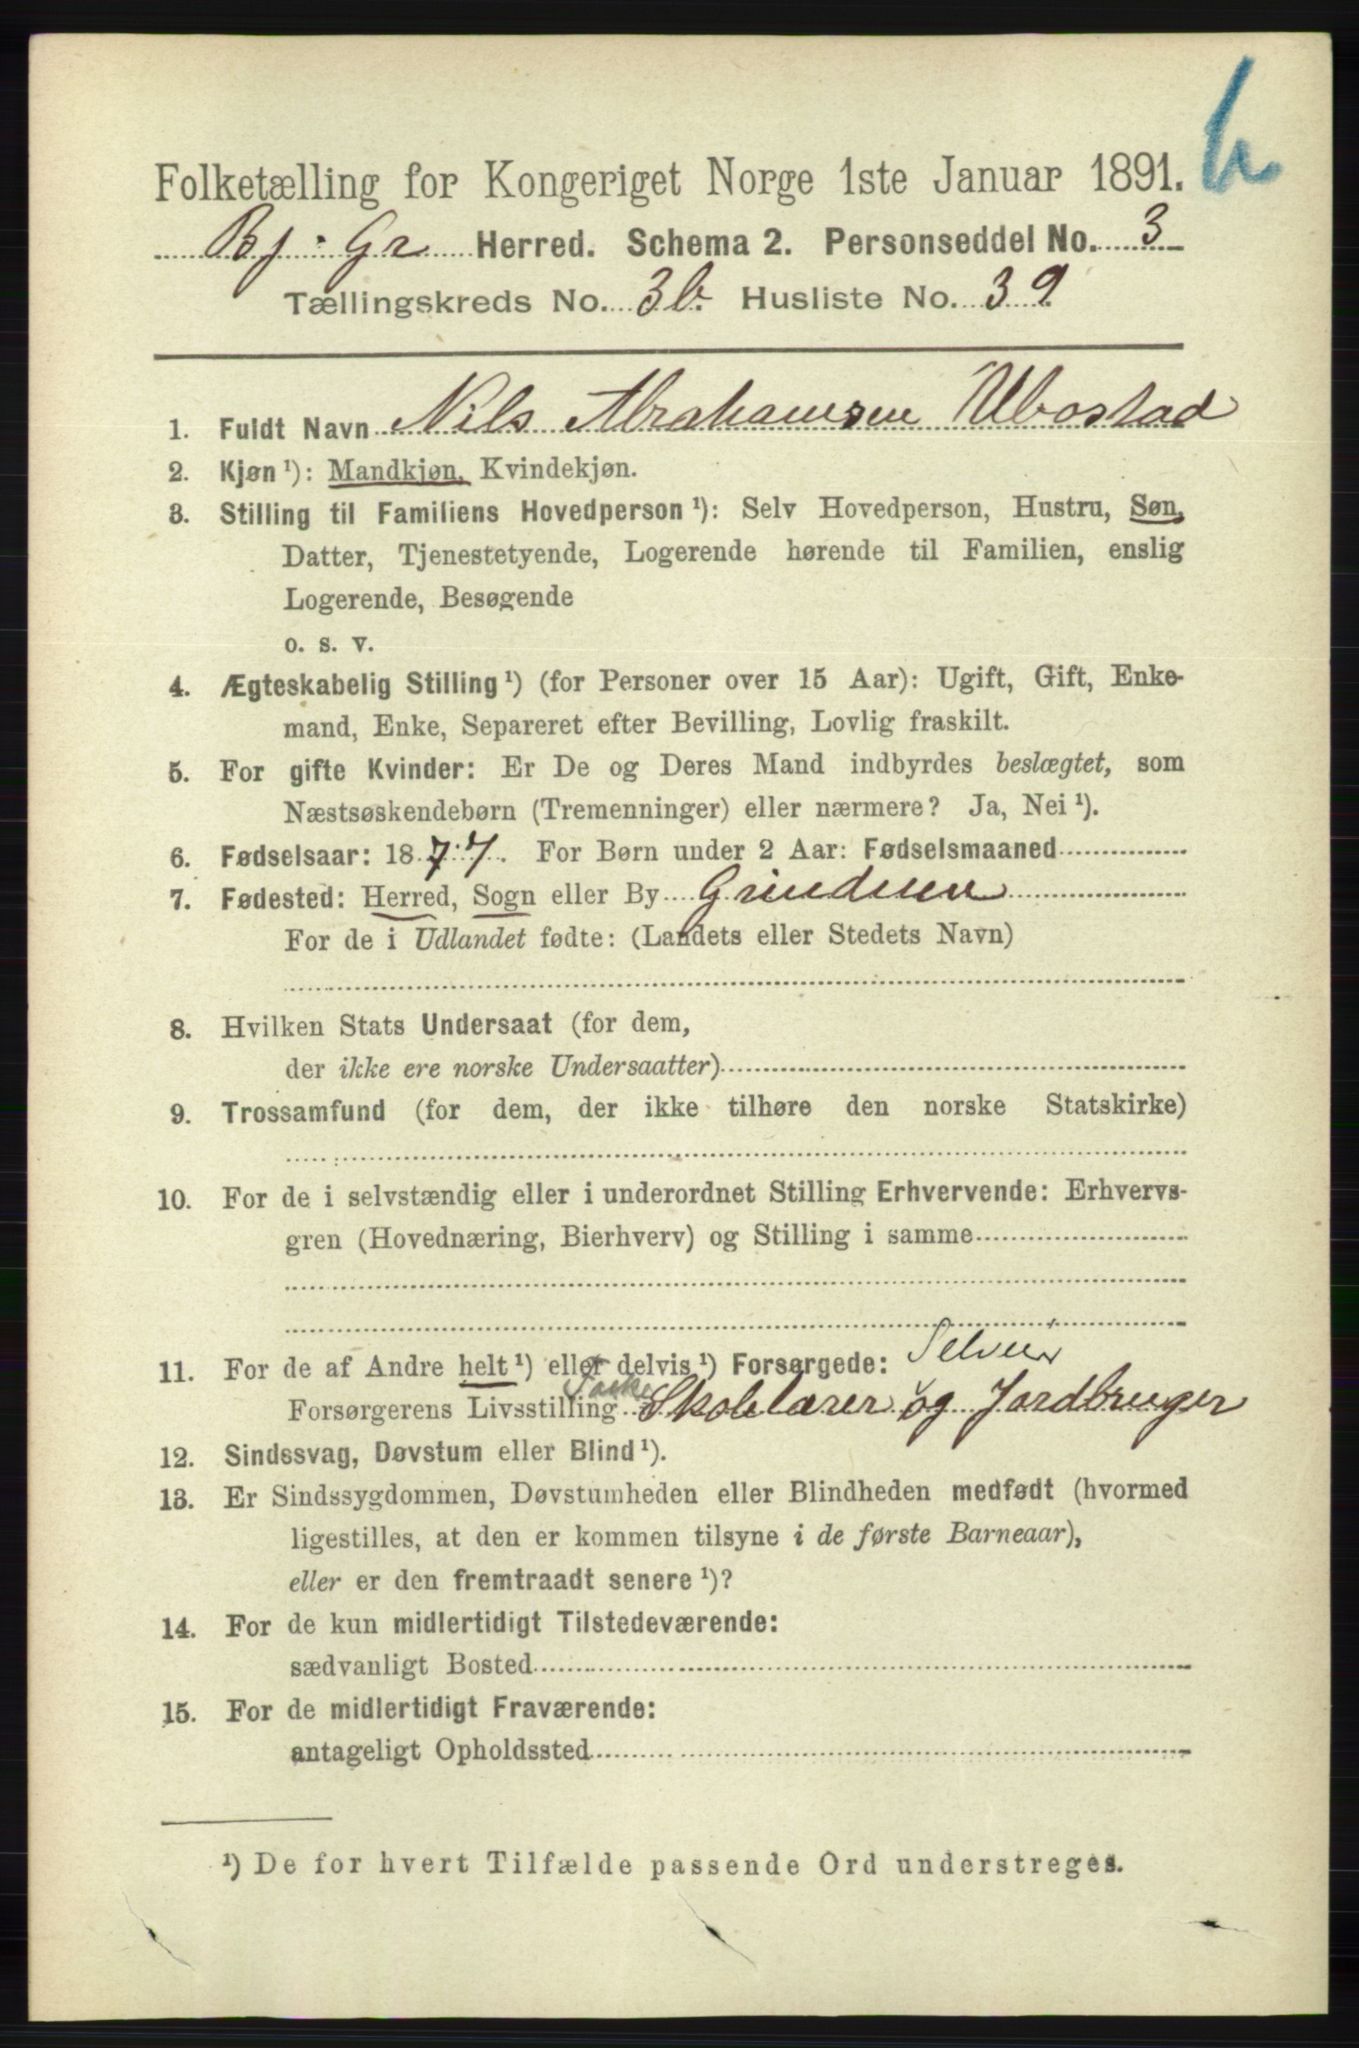 Folketælling for Kongeriget Norge 1ste Januar 1891.
Bj. Gr Herred. Schema 2. Personseddel No. 3
Tællingskreds No. 3b. Husliste No. 39
1. Fuldt Navn Nils Abrahamsen Ubostad
2. Kjøn ¹): Mandkjøn, Kvindekjøn.
3. Stilling til Familiens Hovedperson ¹): Selv Hovedperson, Hustru, Søn,
Datter, Tjenestetyende, Logerende hørende til Familien, enslig
Logerende, Besøgende
o. s. v.
4. Ægteskabelig Stilling ¹) (for Personer over 15 Aar): Ugift, Gift, Enke-
mand, Enke, Separeret efter Bevilling, Lovlig fraskilt.
5. For gifte Kvinder: Er De og Deres Mand indbyrdes beslægtet, som
Næstsøskendebørn (Tremenninger) eller nærmere? Ja, Nei ¹).
6. Fødselsaar: 1877. For Børn under 2 Aar: Fødselsmaaned
7. Fødested: Herred, Sogn eller By Grindum
For de i Udlandet fødte: (Landets eller Stedets Navn)
8. Hvilken Stats Undersaat (for dem,
der ikke ere norske Undersaatter)
9. Trossamfund (for dem, der ikke tilhøre den norske Statskirke)
10. For de i selvstændig eller i underordnet Stilling Erhvervende: Erhvervs-
gren (Hovednæring, Bierhverv) og Stilling i samme
11. For de af Andre helt ¹) eller delvis ¹) Forsørgede: Selveier
Forsørgerens Livsstilling Skolelærer og Jordbruger
12. Sindssvag, Døvstum eller Blind ¹).
13. Er Sindssygdommen, Døvstumheden eller Blindheden medfødt (hvormed
ligestilles, at den er kommen tilsyne i de første Barneaar),
eller er den fremtraadt senere ¹)?
14. For de kun midlertidigt Tilstedeværende:
sædvanligt Bosted
15. For de midlertidigt Fraværende:
antageligt Opholdssted
¹) De for hvert Tilfælde passende Ord understreges.